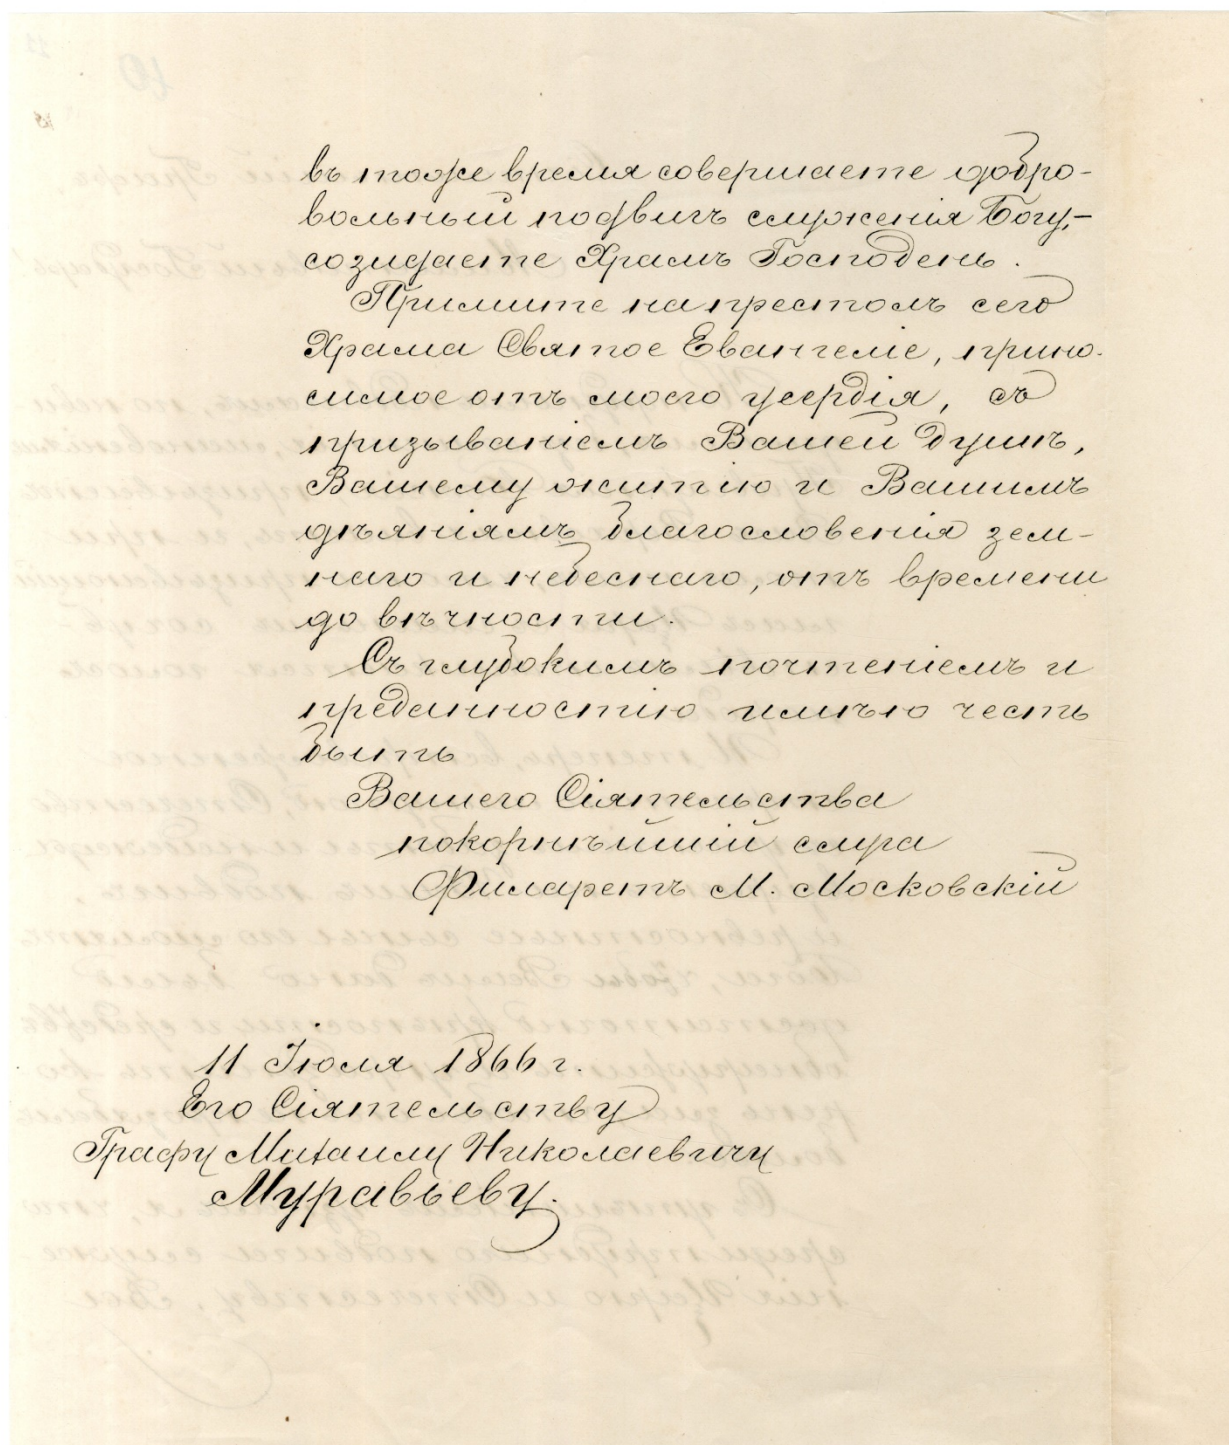 въ тоже время совершаете добро-
вольный подвигъ служенія Богу,–
созидаете Храмъ Господень.
Примите на престолъ сего
Храма Святое Евангеліе, прино-
симое отъ моего усердія, съ
призываніемъ Вашей душѣ,
Вашему житію и Вашимъ
дѣяніямъ благословенія зем-
наго и небеснаго, отъ времени
до вѣчности.
Съ глубокимъ почтеніемъ и
преданностію имѣю честь
быть
Вашего Сіятельства
покорнѣйшій слуга
Филаретъ М. Московскій
11 Іюля 1866 г.
Его Сіятельству
Графу Михаилу Николаевичу
Муравьеву.